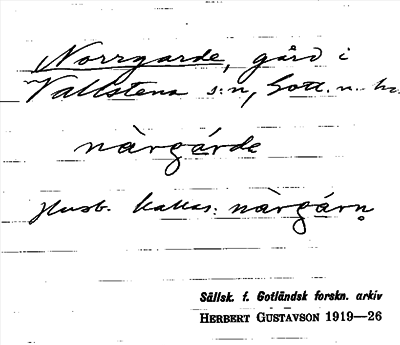 Norrgarde, gård i
Vallstena s:n, Gotl. n. hd.
nàrgárde
Husb. kallas: nàrgárn
Sällsk. f. Gotländsk forskn. arkiv
HERBERT GUSTAVSON 1919—26